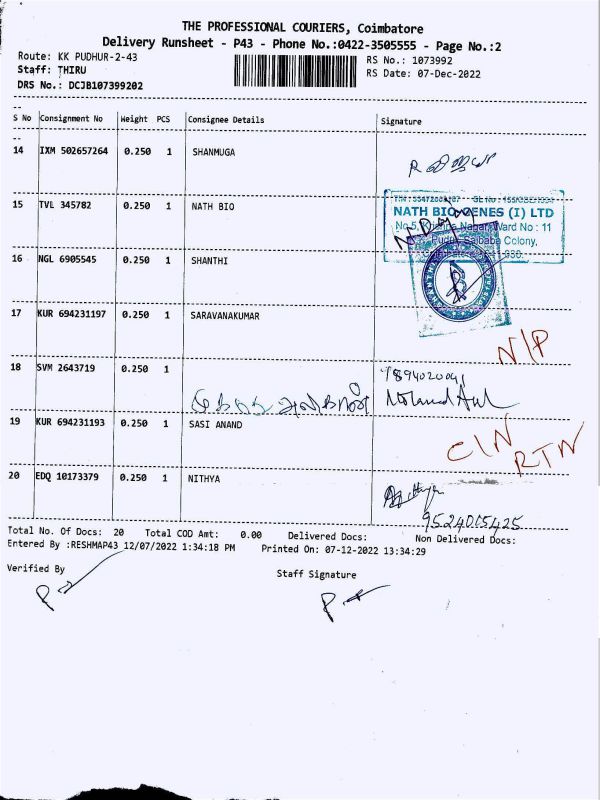 THE PROFESSIONAL COURIERS, Coimbatore
Delivery Runsheet - P43 - Phone No.:0422-3505555 - Page No.:2
Route: KK PUDHUR-2-43
RS No.: 1073992
Staff: THIRU
RS Date: 07-Dec-2022
DRS No.: DCJB107399202
S No Consignment No Weight PCS Consignee Details Signature
14 IXM 502657264 0.250 1 SHANMUGA
15 TVL 345782 0.250 1 NATH BIO
NATH BIO-GENES (I) LTD
Ward No : 11
Saibaba Colony,
16 NGL 6905545 0.250 1 SHANTHI
17 KUR 694231197 0.250 1 SARAVANAKUMAR
N/P
18 SVM 2643719 0.250 1
19 KUR 694231193 0.250 1 SASI ANAND
C/N
RTN
20 EDQ 10173379 0.250 1 NITHYA
9524005425
Total No. Of Docs: 20 Total COD Amt: 0.00 Delivered Docs: Non Delivered Docs:
Entered By :RESHMAP43 12/07/2022 1:34:18 PM Printed On: 07-12-2022 13:34:29
Verified By
Staff Signature